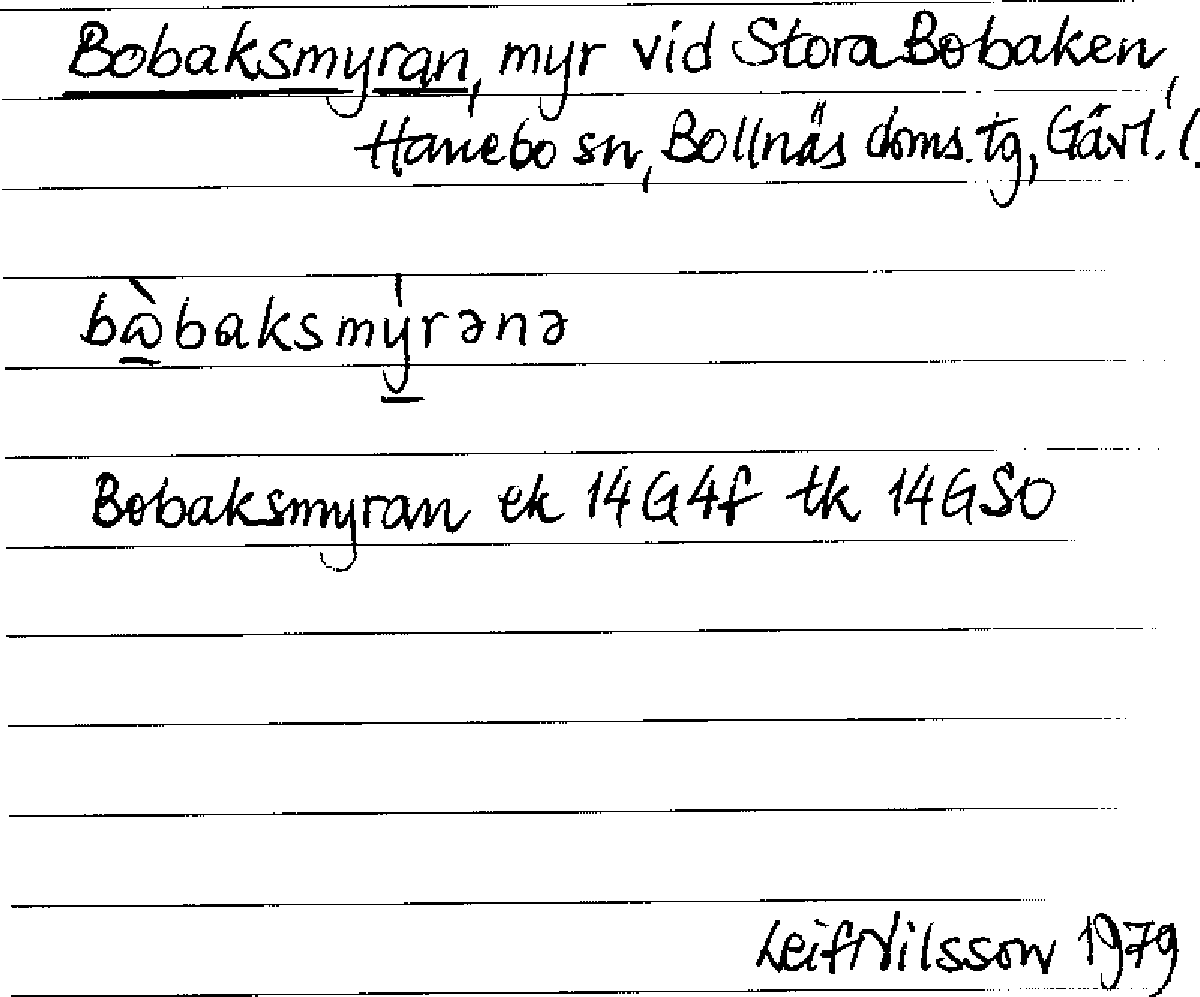 Bobaksmyran, myr vid Stora Bobaken,
Hanebo sn, Bollnäs doms. tg, Gävl. l.
bὼbaksmýrənə
Bobaksmyran ek 14G4f tk 14GSO
Leif Nilsson 1979